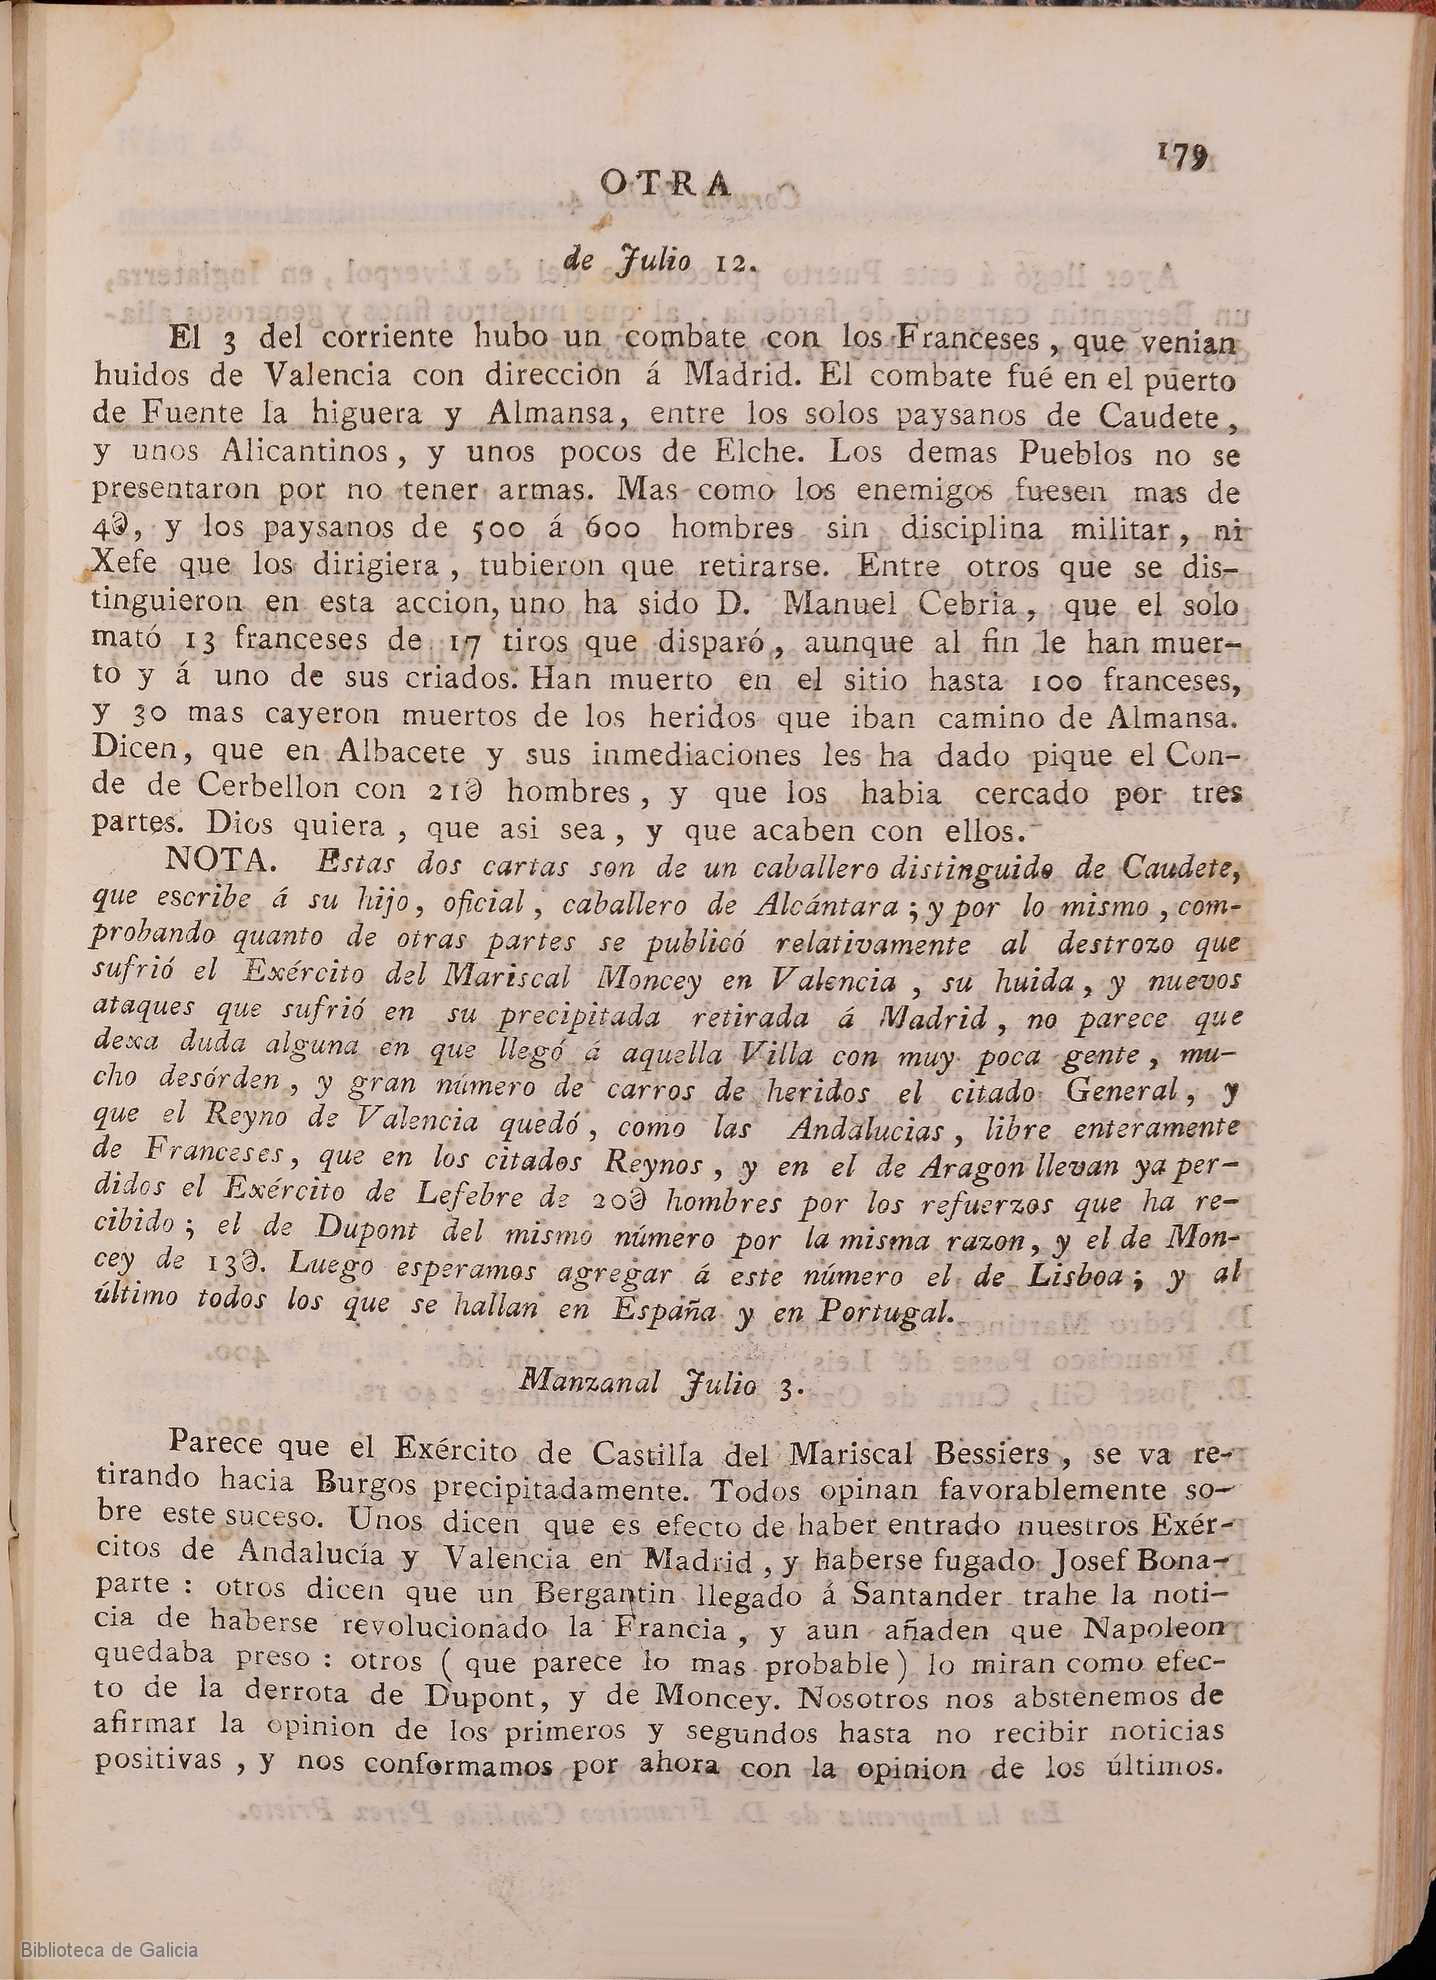 179
OTRA
de Julio 12.
El 3 del corriente hubo un combate con los Franceses, que venian
huidos de Valencia con direccion á Madrid. El combate fué en el puerto
de Fuente la higuera y Almansa, entre los solos paysanos de Caudete,
y unos Alicantinos, y unos pocos de Elche. Los demas Pueblos no se
presentaron por no tener armas. Mas como los enemigos fuesen mas de
4∂, y los paysanos de 500 á 600 hombres sin disciplina militar, ni
Xefe que los dirigiera, tubieron que retirarse. Entre otros que se dis-
tinguieron en esta accion, uno ha sido D. Manuel Cebria, que el solo
mató 13 franceses de 17 tiros que disparó, aunque al fin le han muer-
to y á uno de sus criados. Han muerto en el sitio hasta 100 franceses,
y 30 mas cayeron muertos de los heridos que iban camino de Almansa.
Dicen, que en Albacete y sus inmediaciones les ha dado pique el Con-
de de Cerbellon con 21∂ hombres, y que los habia cercado por tres
partes. Dios quiera, que asi sea, y que acaben con ellos.
NOTA. Estas dos cartas son de un caballero distinguido de Caudete,
que escribe á su hijo, oficial, caballero de Alcántara; y por lo mismo, com-
probando quanto de otras partes se publicó relativamente al destrozo que
sufrió el Exército del Mariscal Moncey en Valencia, su huida, y nuevos
ataques que sufrió en su precipitada retirada á Madrid, no parece que
dexa duda alguna en que llegó á aquella Villa con muy poca gente, mu-
cho desórden, y gran número de carros de heridos el citado General, y
que el Reyno de Valencia quedó, como las Andalucias, libre enteramente
de Franceses, que en los citados Reynos, y en el de Aragon llevan ya per-
didos el Exército de Lefebre de 20∂ hombres por los refuerzos que ha re-
cibido; el de Dupont del mismo número por la misma razon, y el de Mon-
cey de 13∂. Luego esperamos agregar á este número el de Lisboa; y al
último todos los que se hallan en España y en Portugal.
Manzanal Julio 3.
Parece que el Exército de Castilla del Mariscal Bessiers, se va re-
tirando hacia Burgos precipitadamente. Todos opinan favorablemente so-
bre este suceso. Unos dicen que es efecto de haber entrado nuestros Exér-
citos de Andalucía y Valencia en Madrid, y haberse fugado Josef Bona-
parte : otros dicen que un Bergantin llegado á Santander trahe la noti-
cia de haberse revolucionado la Francia, y aun añaden que Napoleon
quedaba preso : otros ( que parece lo mas probable) lo miran como efec-
to de la derrota de Dupont, y de Moncey. Nosotros nos abstenemos de
afirmar la opinion de los primeros y segundos hasta no recibir noticias
positivas, y nos conformamos por ahora con la opinion de los últimos.
Biblioteca de Galicia